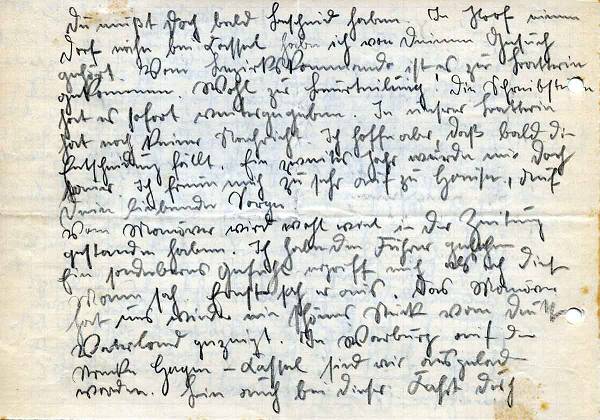 Du mußt doch bald Bescheid haben. In Hoof einem
Dorf nahe bei Kassel habe ich von Deinem Gesuch
gehört. Vom Bezirkskommando ist es zur Batterie
gekommen. Wohl zur Beurteilung! Die Schreibstube
hat es sofort weitergegeben. In unserer Batterie
hat noch keiner Nachricht. Ich hoffe aber, daß bald die
Entscheidung fällt. Ein weites Jahr würde mir doch
schwer. Ich freue mich zu sehr auf zu Hause, auf
Deine liebende Sorge.
Vom Manöver wird wohl viel in der Zeitung
gestanden haben. Ich habe den Führer gesehen
Ein sonderbares Gefühl ergriff mich als ich diesen
Mann sah. Ernst sah er aus. Das Manöver
hat uns wieder ein schönes Stück vom deutschen
Vaterland gezeigt. In Warburg auf der
Strecke Hagen - Kassel sind wir ausgeladen
worden. Hin auch bei dieser Fahrt durch